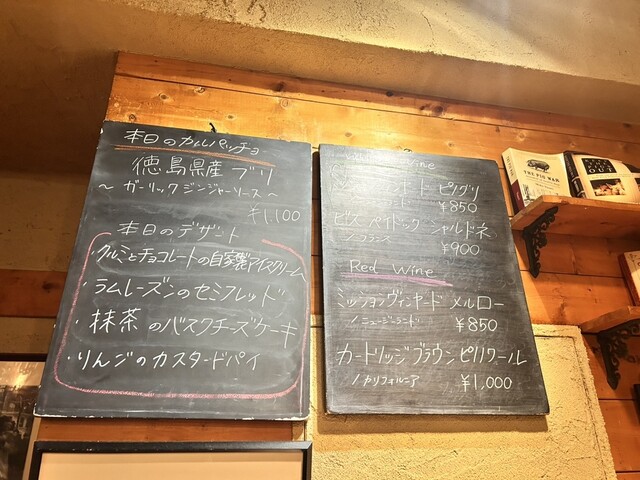 本日のカルパッチョ
徳島県産 ブリ
〜 ガーリックジンジャーソース 〜
¥1,100
本日のデザート
・クルミとチョコレートの自家製アイスクリーム
・ラムレーズンのセミフレッド
・抹茶のバスクチーズケーキ
・りんごのカスタードパイ
Wine
ピノグリ
¥850
ビズ ペイドック シャルドネ
/ フランス
¥900
Red Wine
ミッションヴィンヤード メルロー
/ ニュージーランド ¥850
カードリッジブラウン ピノノワール
/ カリフォルニア ¥1,000
THE PIG WAR
OUT